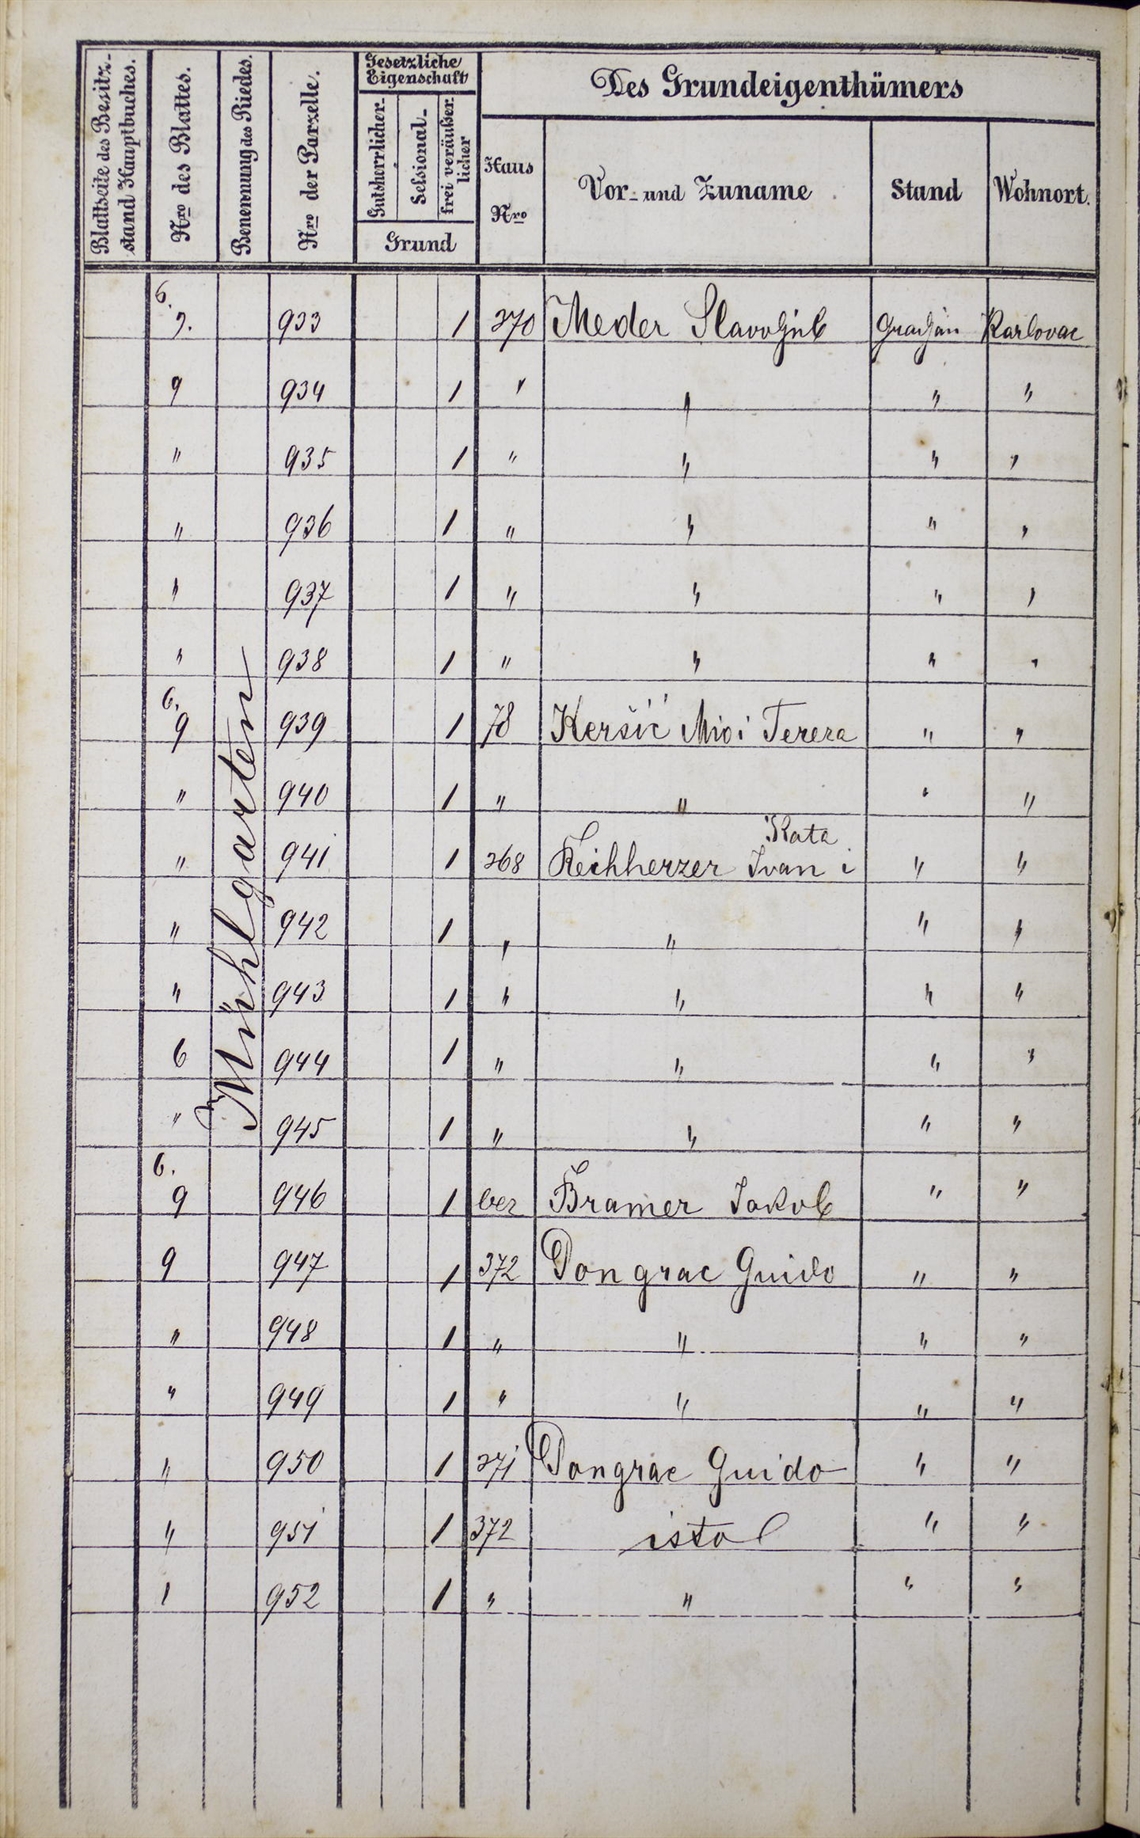 Blattseite des Besitz-
stand Hauptbuches.
Nro des Blattes.
Benennung des Riedes.
Nro der Parzelle.
Gesetzliche
Eigenschaft
Gutsherrlicher-
Sessional-
frei veräußer
licher
Grund
Des Grundeigenthümers
Haus
Nro
Vor- und Zuname
Stand
Wohnort.
6.
9. 933 1 270 Meder Slavoljub Gradjan Karlovac
9 934 1 " " " "
" 935 1 " " " "
" 936 1 " " " "
" 937 1 " " " "
" 938 1 " " " "
6.
9 939 1 78 Keršić Mio i Tereza " "
" 940 1 " " " "
Kata
" 941 1 268 Reichherzer Ivan i " "
" 942 1 " " " "
" 943 1 " " " "
6 944 1 " " " "
" 945 1 " " " "
Mühlgarten
6.
9 946 1 bez Bramer Jakob " "
9 947 1 372 Pongrac Guido " "
" 948 1 " " " "
" 949 1 " " " "
" 950 1 271 Pongrac Guido " "
" 951 1 372 isto " "
1 952 1 " " " "